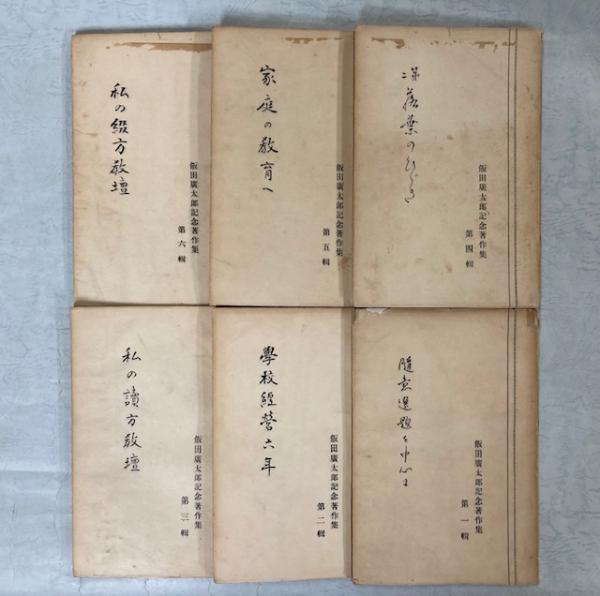 葉の
飯田廣太郎記念著作集
第四輯
家庭の教育へ
飯田廣太郎記念著作集
第五輯
私の綴方教壇
飯田廣太郎記念著作集
第六輯
隨意選題を中心に
飯田廣太郎記念著作集
第一輯
學校經營六年
飯田廣太郎記念著作集
第二輯
私の讀方教壇
飯田廣太郎記念著作集
第三輯